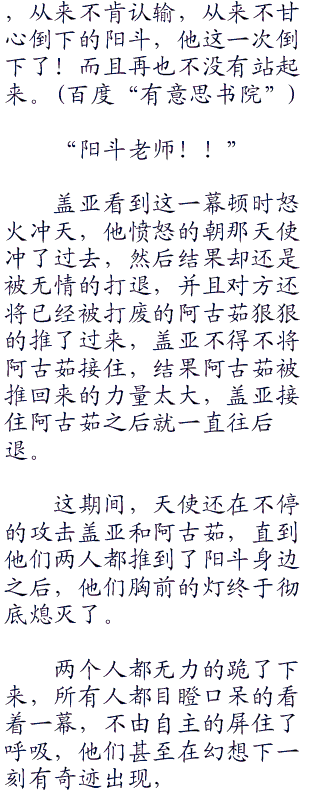 ，从来不肯认输，从来不甘
心倒下的阳斗，他这一次倒
下了！而且再也不没有站起
来。(百度“有意思书院”)
“阳斗老师！！”
盖亚看到这一幕顿时怒
火冲天，他愤怒的朝那天使
冲了过去，然后结果却还是
被无情的打退，并且对方还
将已经被打废的阿古茹狠狠
的推了过来，盖亚不得不将
阿古茹接住，结果阿古茹被
推回来的力量太大，盖亚接
住阿古茹之后就一直往后
退。
这期间，天使还在不停
的攻击盖亚和阿古茹，直到
他们两人都推到了阳斗身边
之后，他们胸前的灯终于彻
底熄灭了。
两个人都无力的跪了下
来，所有人都目瞪口呆的看
着一幕，不由自主的屏住了
呼吸，他们甚至在幻想下一
刻有奇迹出现，